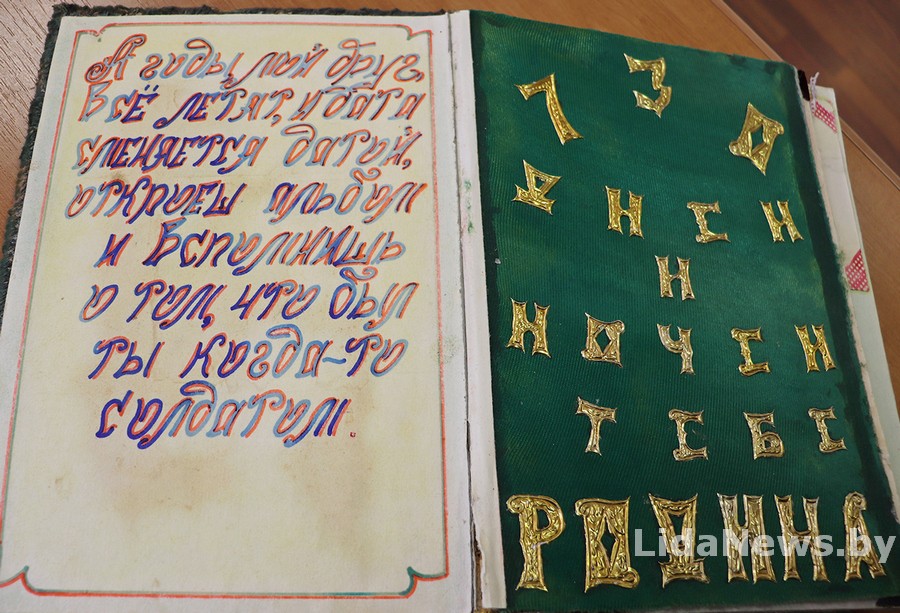 А годы, мой друг,
всё летят, и дата
сменяется датой,
откроеш альбом
и вспомнишь
о том, что был
ты когда-то
солдатом.
730
ДНЕЙ
И
НОЧЕЙ
ТЕБЕ
РОДИНА
LidaNews.by